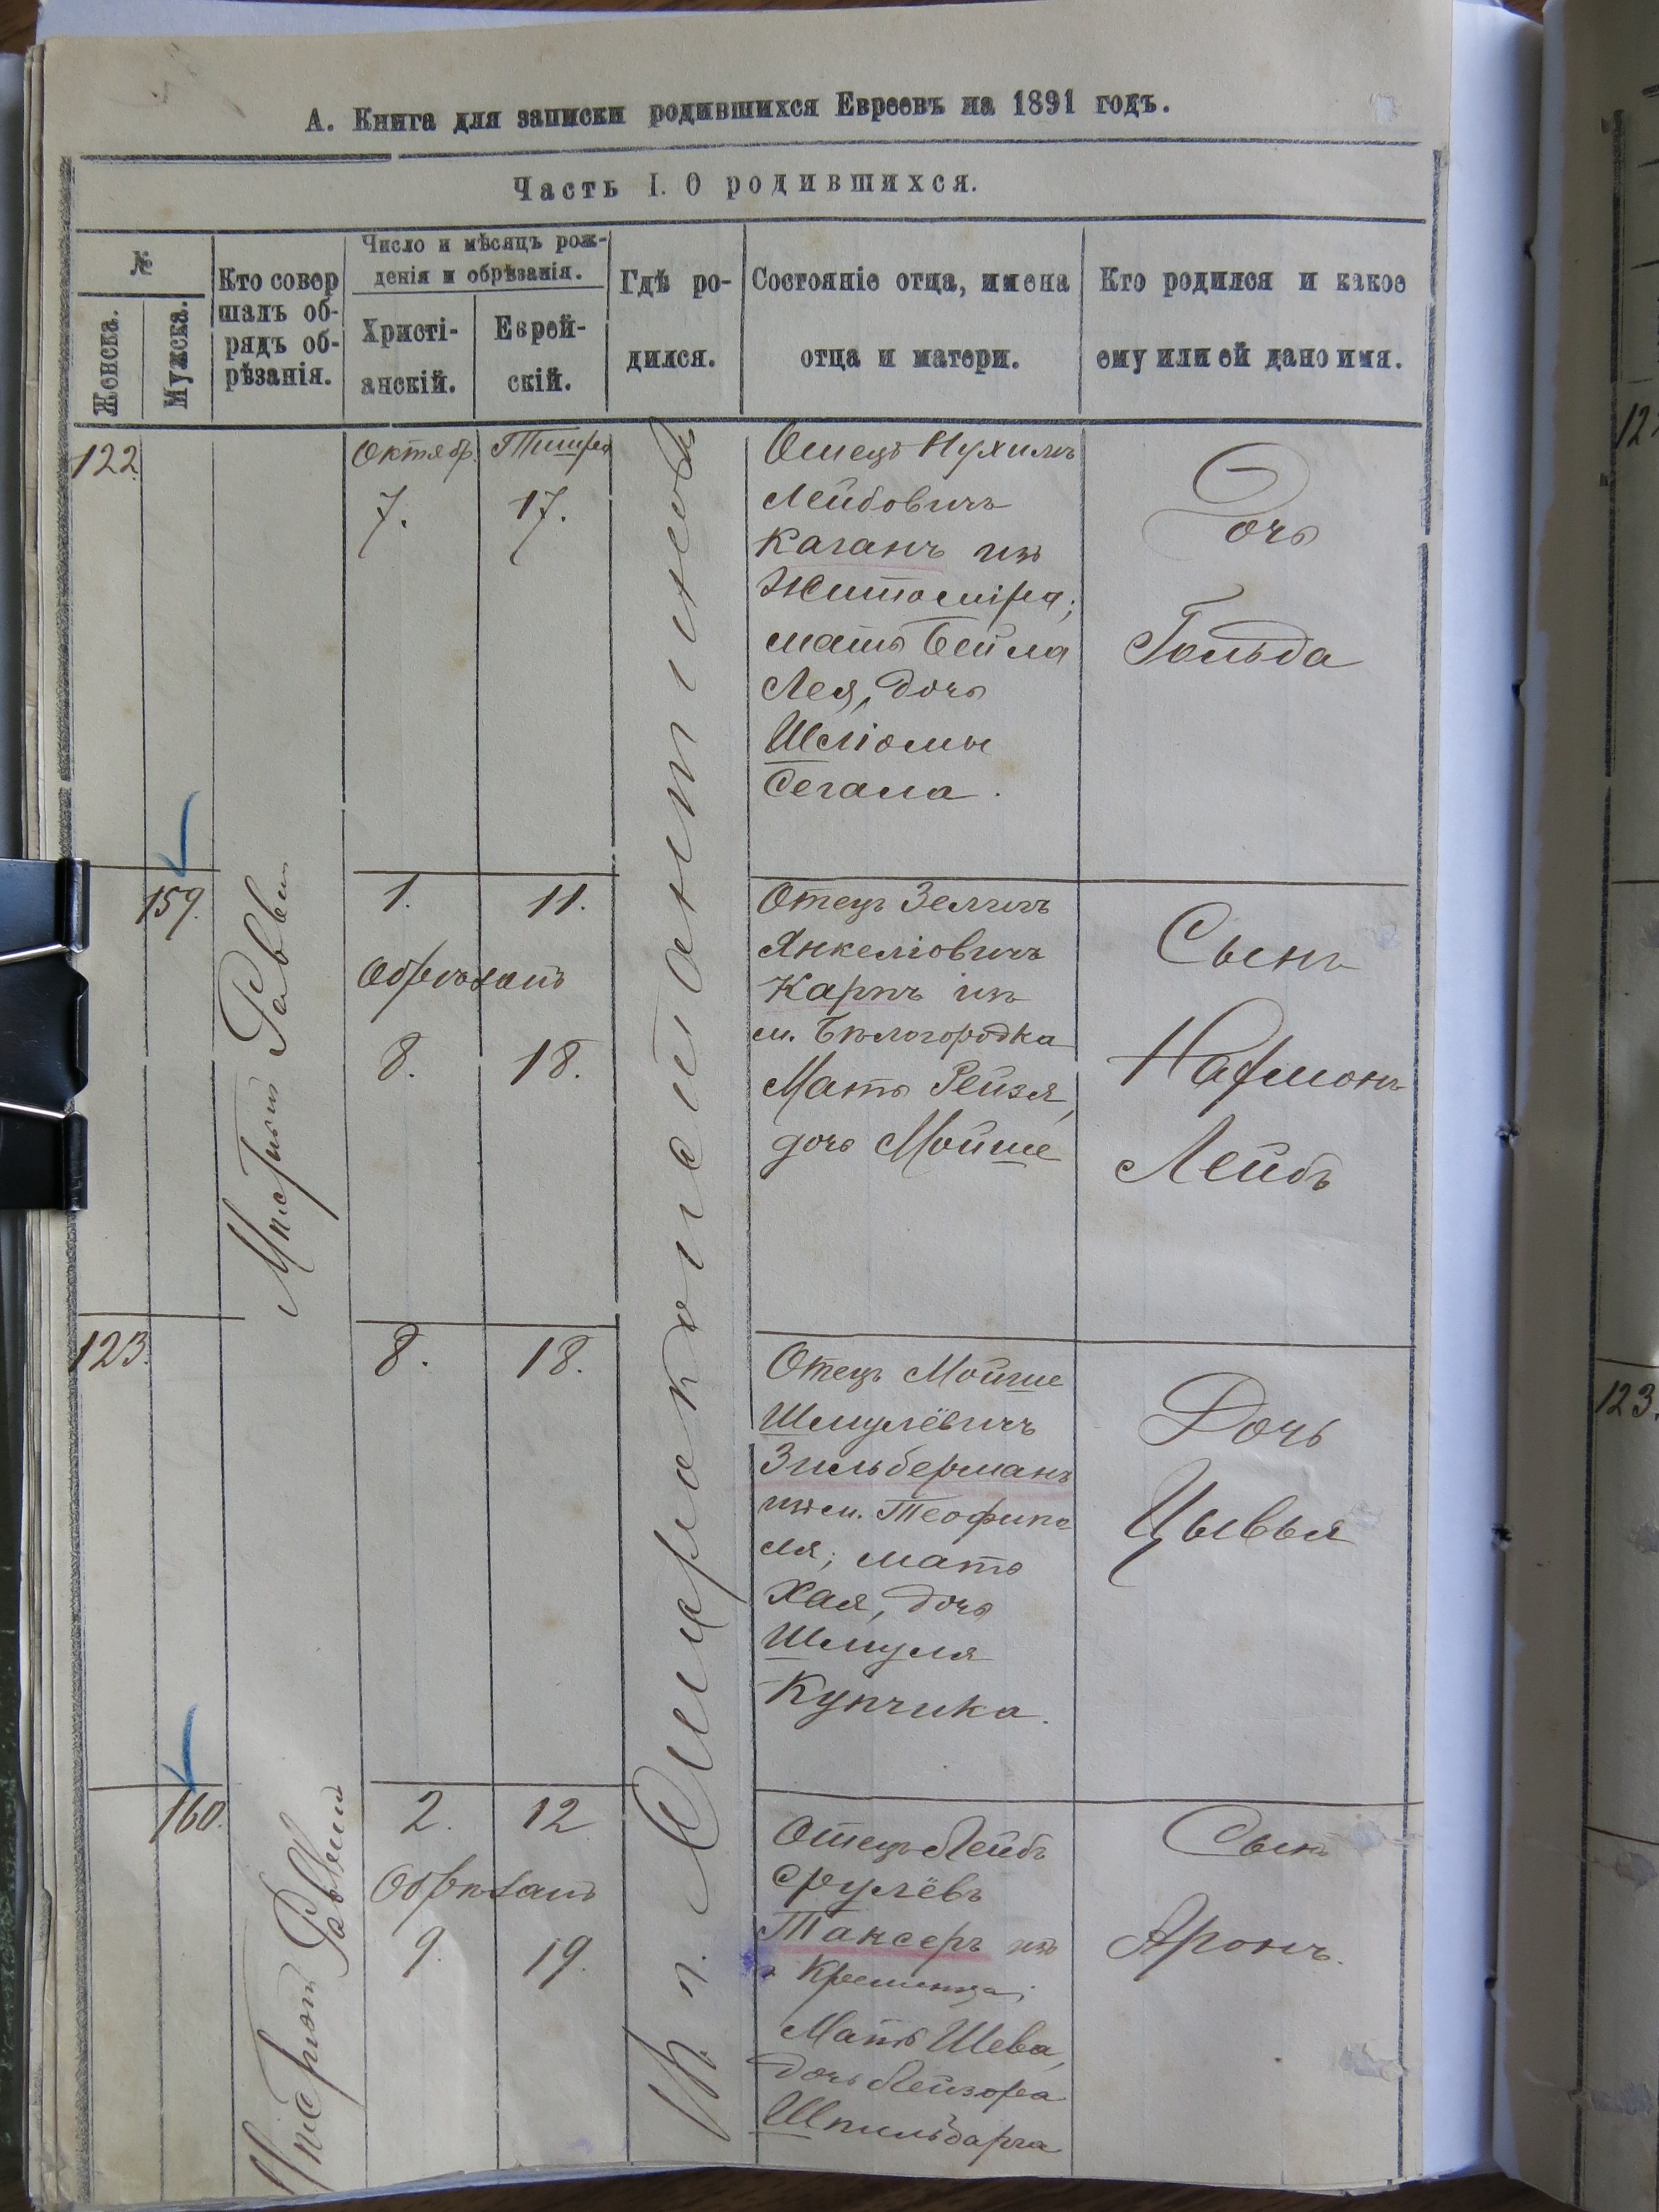 А. Книга для записки родившихся Евреевъ на 1891 годъ.
Часть I. О родившихся.
№
Женска.
Мужска.
Кто совер
шалъ об-
рядъ об-
рѣзанія.
Число и мѣсяцъ рож-
денія и обрѣзанія.
Христі-
анскій.
Еврей-
скій.
Гдѣ ро-
дился.
Состояніе отца, имена
отца и матери.
Кто родился и какое
ему или ей дано имя.
122
Октябр.
7.
17.
Отецъ Нухимъ
Лейбовичъ
Каганъ изъ
Житоміра;
мать Бейла
Лея, дочь
Шліомы
Сегала.
Дочь
Гольда
159.
Раввин
1.
11.
Обрѣзанъ
8.
18.
Отецъ Зелигъ
Янкеліовичъ
Карпъ изъ
м. Бѣлогородка
Мать Рейзя,
дочь Мойше
Сынъ
Лейбъ
123.
8.
18.
Отецъ Мойше
Шмулёвичъ
Зильберманъ
изъ м. Теофипо
ля; мать
Хая, дочь
Шмуля
Купчика.
Дочь
Цывья
160.
2.
12
Обрѣзанъ
9.
19.
Отецъ Лейбъ
Срулёвъ
Таксеръ изъ
г. Кременца;
Мать Шева,
дочь Лейзора
Сынъ
Аронъ.
В п.
12
123.